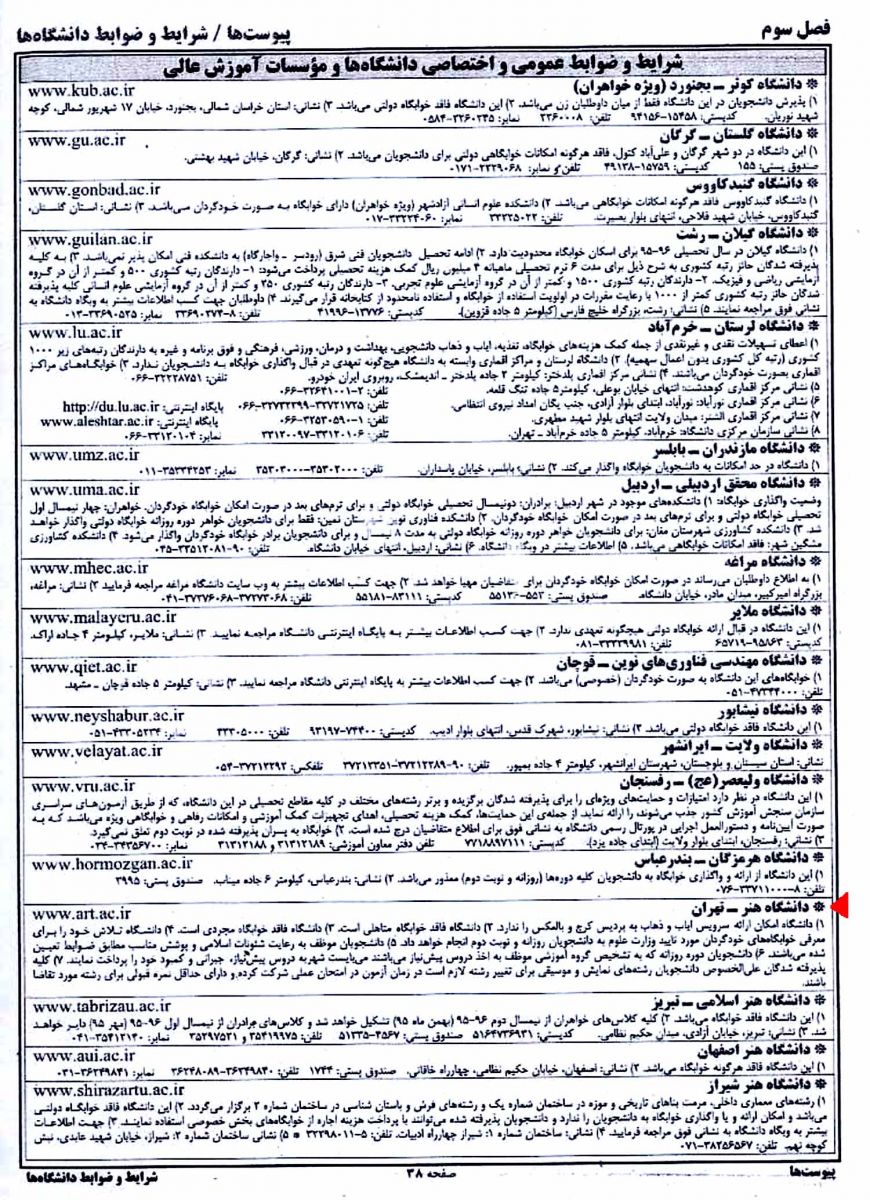 فصل سوم
پیوست‌ها / شرایط و ضوابط دانشگاه‌ها
شرایط و ضوابط عمومی و اختصاصی دانشگاه‌ها و مؤسسات آموزش عالی
❊ دانشگاه کوثر ــ بجنورد (ویژه خواهران) www.kub.ac.ir
۱) پذیرش دانشجویان در این دانشگاه فقط از میان داوطلبان زن می‌باشد. ۲) این دانشگاه فاقد خوابگاه دولتی می‌باشد. ۳) نشانی: استان خراسان شمالی، بجنورد، خیابان ۱۷ شهریور شمالی، کوچه
شهید نوریان. کدپستی: ۱۵۴۵۸-۹۴۱۵۶ تلفن: ۲۲۶۰۰۰۸ نمابر: ۲۲۶۰۲۴۵-۰۵۸۴
❊ دانشگاه گلستان ــ گرگان www.gu.ac.ir
۱) این دانشگاه در دو شهر گرگان و علی‌آباد کتول، فاقد هرگونه امکانات خوابگاهی دولتی برای دانشجویان می‌باشد. ۲) نشانی: گرگان، خیابان شهید بهشتی.
صندوق پستی: ۱۵۵ کدپستی: ۱۵۷۵۹-۴۹۱۳۸ تلفن و نمابر: ۲۲۲۹۰۶۸-۰۱۷۱
❊ دانشگاه گنبدکاووس www.gonbad.ac.ir
دانشگاه گنبدکاووس فاقد هرگونه امکانات خوابگاهی می‌باشد. ۲) دانشکده علوم انسانی آزادشهر (ویژه خواهران) دارای خوابگاه به صورت خودگردان می‌باشد. ۳) نشانی: استان گلستان،
گنبدکاووس، خیابان شهید فلاحی، انتهای بلوار بصیرت. تلفن: ۳۳۲۲۵۰۲۲ نمابر: ۳۳۲۲۴۰۶۰-۰۱۷
❊ دانشگاه گیلان ــ رشت www.guilan.ac.ir
۱) دانشگاه گیلان در سال تحصیلی ۹۶-۹۵ برای اسکان خوابگاه محدودیت دارد. ۲) ادامه تحصیل دانشجویان فنی شرق (رودسر ــ واجارگاه) به دانشکده فنی امکان پذیر نمی‌باشد. ۳) به کلیه
پذیرفته شدگان حائز رتبه کشوری به شرح ذیل برای مدت ۶ ترم تحصیلی ماهیانه ۴ میلیون ریال کمک هزینه تحصیلی پرداخت می‌شود: ۱- دارندگان رتبه کشوری ۵۰۰ و کمتر از آن در گروه
آزمایشی ریاضی و فیزیک. ۲- دارندگان رتبه کشوری ۱۵۰۰ و کمتر از آن در گروه آزمایشی علوم تجربی. ۳- دارندگان رتبه کشوری ۲۵۰ و کمتر از آن در گروه آزمایشی علوم انسانی کلیه پذیرفته
شدگان حائز رتبه کشوری کمتر از ۱۰۰۰ با رعایت مقررات در اولویت استفاده از خوابگاه و استفاده نامحدود از کتابخانه قرار می‌گیرند. ۴) داوطلبان جهت کسب اطلاعات بیشتر به وبگاه دانشگاه به
نشانی فوق مراجعه نمایند. ۵) نشانی: رشت، بزرگراه خلیج فارس (کیلومتر ۵ جاده قزوین). کدپستی: ۱۳۷۷۶-۴۱۹۹۶ تلفن: ۸-۳۳۶۹۰۲۷۴ نمابر: ۳۳۶۹۰۵۲۵-۰۱۳
❊ دانشگاه لرستان ــ خرم‌آباد www.lu.ac.ir
اعطای تسهیلات نقدی و غیرنقدی از جمله کمک هزینه‌های خوابگاه، تغذیه، ایاب و ذهاب دانشجویی، بهداشت و درمان، ورزشی، فرهنگی و فوق برنامه و غیره به دارندگان رتبه‌های زیر ۱۰۰۰
کشوری (رتبه کل کشوری بدون اعمال سهمیه). ۲) دانشگاه لرستان و مراکز اقماری وابسته به دانشگاه هیچ‌گونه تعهدی در قبال واگذاری خوابگاه به دانشجویان ندارد. ۳) خوابگاه‌های مراکز
اقماری بصورت خودگردان می‌باشند. ۴) نشانی مرکز اقماری پلدختر: کیلومتر ۲ جاده پلدختر ــ اندیمشک، روبروی ایران خودرو. تلفن: ۳۲۲۲۸۷۵۱-۰۶۶
۵) نشانی مرکز اقماری کوهدشت: انتهای خیابان بوعلی، کیلومتر۵ جاده تنگ قلعه. تلفن: ۲-۳۲۶۴۱۰۰۱-۰۶۶
۶) نشانی مرکز اقماری نورآباد: نورآباد، ابتدای بلوار آزادی، جنب یگان امداد نیروی انتظامی. تلفن: ۳۲۷۲۱۷۲۵-۳۲۷۳۲۲۹۹-۰۶۶ پایگاه اینترنتی: http://du.lu.ac.ir
۷) نشانی مرکز اقماری الشتر: میدان ولایت انتهای بلوار شهید مطهری. تلفن: ۱-۳۲۵۳۰۵۹۰-۰۶۶ پایگاه اینترنتی: www.aleshtar.ac.ir
۸) نشانی سازمان مرکزی دانشگاه: خرم‌آباد، کیلومتر ۵ جاده خرم‌آباد ــ تهران. تلفن: ۳۳۱۲۰۱۰۶-۳۳۱۲۰۰۹۷ نمابر: ۳۳۱۲۰۱۰۴-۰۶۶
❊ دانشگاه مازندران ــ بابلسر www.umz.ac.ir
۱) دانشگاه در حد امکانات به دانشجویان خوابگاه واگذار می‌کند. ۲) نشانی: بابلسر، خیابان پاسداران. تلفن: ۳۵۳۰۲۰۰۰-۳۵۳۰۳۰۰۰ نمابر: ۳۵۳۴۴۲۵۳-۰۱۱
❊ دانشگاه محقق اردبیلی ــ اردبیل www.uma.ac.ir
وضعیت واگذاری خوابگاه: ۱) دانشکده‌های موجود در شهر اردبیل: برادران: دونیمسال تحصیلی خوابگاه دولتی و برای ترم‌های بعد در صورت امکان خوابگاه خودگردان. خواهران: چهار نیمسال اول
تحصیلی خوابگاه دولتی و برای ترم‌های بعد در صورت امکان خوابگاه خودگردان. ۲) دانشکده فناوری نوین شهرستان نمین: فقط برای دانشجویان خواهر دوره روزانه خوابگاه دولتی واگذار خواهد
شد. ۳) دانشکده کشاورزی شهرستان مغان: برای دانشجویان خواهر دوره روزانه خوابگاه دولتی به مدت ۸ نیمسال و برای دانشجویان برادر خوابگاه خودگردان واگذار می‌شود. ۴) دانشکده کشاورزی
مشگین شهر: فاقد امکانات خوابگاهی می‌باشد. ۵) اطلاعات بیشتر در وبگاه دانشگاه. ۶) نشانی: اردبیل، انتهای خیابان دانشگاه. تلفن: ۹۰-۳۳۵۱۲۰۸۱-۰۴۵
❊ دانشگاه مراغه www.mhec.ac.ir
۱) به اطلاع داوطلبان می‌رساند در صورت امکان خوابگاه خودگردان برای متقاضیان مهیا خواهد شد. ۲) جهت کسب اطلاعات بیشتر به وب سایت دانشگاه مراغه مراجعه فرمایید ۳) نشانی: مراغه،
بزرگراه امیرکبیر، میدان مادر، خیابان دانشگاه. صندوق پستی: ۵۵۳-۵۵۱۳۶ کدپستی: ۸۳۱۱۱-۵۵۱۸۱ تلفن: ۳۷۲۷۳۰۶۸-۳۷۲۷۶۰۶۸-۰۴۱
❊ دانشگاه ملایر www.malayeru.ac.ir
۱) این دانشگاه در قبال ارائه خوابگاه دولتی هیچگونه تعهدی ندارد. ۲) جهت کسب اطلاعات بیشتر به پایگاه اینترنتی دانشگاه مراجعه نمایید. ۳) نشانی: ملایر، کیلومتر ۴ جاده اراک.
کدپستی: ۹۵۸۶۳-۶۵۷۱۹ تلفن: ۳۳۳۳۹۹۸۱-۰۸۱
❊ دانشگاه مهندسی فناوری‌های نوین ــ قوچان www.qiet.ac.ir
۱) خوابگاه‌های این دانشگاه به صورت خودگردان (خصوصی) می‌باشد. ۲) جهت کسب اطلاعات بیشتر به پایگاه اینترنتی دانشگاه مراجعه نمایید. ۳) نشانی: کیلومتر ۵ جاده قوچان ــ مشهد.
تلفن: ۴۷۳۴۴۰۰۰-۰۵۱
❊ دانشگاه نیشابور www.neyshabur.ac.ir
۱) این دانشگاه فاقد خوابگاه دولتی می‌باشد. ۲) نشانی: نیشابور، شهرک قدس، انتهای بلوار ادیب. کدپستی: ۷۴۴۰۰-۹۳۱۹۷ تلفن: ۴۳۳۰۵۰۰۰ نمابر: ۴۳۳۰۵۲۳۴-۰۵۱
❊ دانشگاه ولایت ــ ایرانشهر www.velayat.ac.ir
نشانی: استان سیستان و بلوچستان، شهرستان ایرانشهر، کیلومتر ۴ جاده بمپور. تلفن: ۹۰-۳۷۲۱۲۲۸۹-۳۷۲۱۳۳۵۱ تلفکس: ۳۷۲۱۲۲۹۲-۰۵۴
❊ دانشگاه ولیعصر(عج) ــ رفسنجان www.vru.ac.ir
۱) این دانشگاه در نظر دارد امتیازات و حمایت‌های ویژه‌ای را برای پذیرفته شدگان برگزیده و برتر رشته‌های مختلف در کلیه مقاطع تحصیلی در این دانشگاه، که از طریق آزمون‌های سراسری
سازمان سنجش آموزش کشور جذب می‌شوند، را ارائه نماید از جمله‌ی این حمایت‌ها، کمک هزینه تحصیلی، اهدای تجهیزات کمک آموزشی و امکانات رفاهی و خوابگاهی ویژه می‌باشد که به
صورت آیین‌نامه و دستورالعمل اجرایی در پورتال رسمی دانشگاه به نشانی فوق برای اطلاع متقاضیان درج شده است. ۲) خوابگاه به پسران پذیرفته شده در نوبت دوم تعلق نمی‌گیرد.
۳) نشانی: رفسنجان، ابتدای بلوار ولایت (ابتدای جاده یزد). کدپستی: ۷۷۱۸۸۹۷۱۱۱ تلفن دفتر معاون آموزشی: ۳۱۳۱۲۱۸۹ و ۳۱۳۱۲۱۸۸ نمابر: ۳۴۲۵۶۷۰۰-۰۳۴
❊ دانشگاه هرمزگان ــ بندرعباس www.hormozgan.ac.ir
۱) این دانشگاه از ارائه و واگذاری خوابگاه به دانشجویان کلیه دوره‌ها (روزانه و نوبت دوم) معذور می‌باشد. ۲) نشانی: بندرعباس، کیلومتر ۶ جاده میناب. صندوق پستی: ۳۹۹۵
تلفن: ۸-۳۳۷۱۱۰۰۰-۰۷۶
❊ دانشگاه هنر ــ تهران www.art.ac.ir
۱) دانشگاه امکان ارائه سرویس ایاب و ذهاب به پردیس کرج و بالعکس را ندارد. ۲) دانشگاه فاقد خوابگاه متاهلی است. ۳) دانشگاه فاقد خوابگاه مجردی است. ۴) دانشگاه تلاش خود را برای
معرفی خوابگاه‌های خودگردان مورد تایید وزارت علوم به دانشجویان روزانه و نوبت دوم انجام خواهد داد. ۵) دانشجویان موظف به رعایت شئونات اسلامی و پوشش مناسب مطابق ضوابط تعیین
شده می‌باشند. ۶) دانشجویان دوره روزانه که به تشخیص گروه آموزشی موظف به اخذ دروس پیش‌نیاز می‌باشند می‌بایست شهریه دروس پیش‌نیاز، جبرانی و کمبود خود را پرداخت نمایند. ۷) کلیه
پذیرفته شدگان علی‌الخصوص دانشجویان رشته‌های نمایش و موسیقی برای تغییر رشته لازم است در زمان آزمون در امتحان عملی شرکت کرده و دارای حداقل نمره قبولی برای رشته مورد تقاضا
باشند.
❊ دانشگاه هنر اسلامی ــ تبریز www.tabrizau.ac.ir
۱) این دانشگاه فاقد خوابگاه می‌باشد. ۲) کلیه کلاس‌های خواهران از نیمسال دوم ۹۶-۹۵ (بهمن ماه ۹۵) تشکیل خواهد شد و کلاس‌های برادران از نیمسال اول ۹۶-۹۵ (مهر ۹۵) دایر خواهد
شد. ۳) نشانی: تبریز، خیابان آزادی، میدان حکیم نظامی. کدپستی: ۵۱۶۴۷۳۶۹۳۱ صندوق پستی: ۴۵۶۷-۵۱۳۳۵ تلفن: ۳۵۴۱۹۹۷۵ و ۳۵۲۹۷۵۲۱ نمابر: ۳۵۴۱۲۱۴۰-۰۴۱
❊ دانشگاه هنر اصفهان www.aui.ac.ir
۱) این دانشگاه فاقد هرگونه خوابگاه می‌باشد. ۲) نشانی: اصفهان، خیابان حکیم نظامی، چهارراه خاقانی. صندوق پستی: ۱۷۴۴ تلفن: ۳۶۲۴۹۸۴۰-۳۶۲۴۸۰۸۹ نمابر: ۳۶۲۴۹۸۴۱-۰۳۱
❊ دانشگاه هنر شیراز www.shirazartu.ac.ir
۱) رشته‌های معماری داخلی، مرمت بناهای تاریخی و موزه در ساختمان شماره یک و رشته‌های فرش و باستان شناسی در ساختمان شماره ۲ برگزار می‌گردد. ۲) این دانشگاه فاقد خوابگاه دولتی
می‌باشد و امکان ارائه و یا واگذاری خوابگاه به دانشجویان را ندارد و دانشجویان پذیرفته شده می‌توانند با پرداخت هزینه اجاره از خوابگاه‌های بخش خصوصی استفاده نمایند. ۳) جهت اطلاعات
بیشتر به وبگاه دانشگاه به نشانی فوق مراجعه فرمایید. ۴) نشانی: ساختمان شماره ۱: شیراز چهارراه ادبیات. تلفن: ۵-۳۲۲۹۸۰۱۱ ۵) نشانی ساختمان شماره ۲: شیراز، خیابان شهید عابدی، نبش
کوچه نهم. تلفن: ۳۸۲۵۶۵۶۷-۰۷۱
پیوست‌ها
صفحه ۳۸
شرایط و ضوابط دانشگاه‌ها